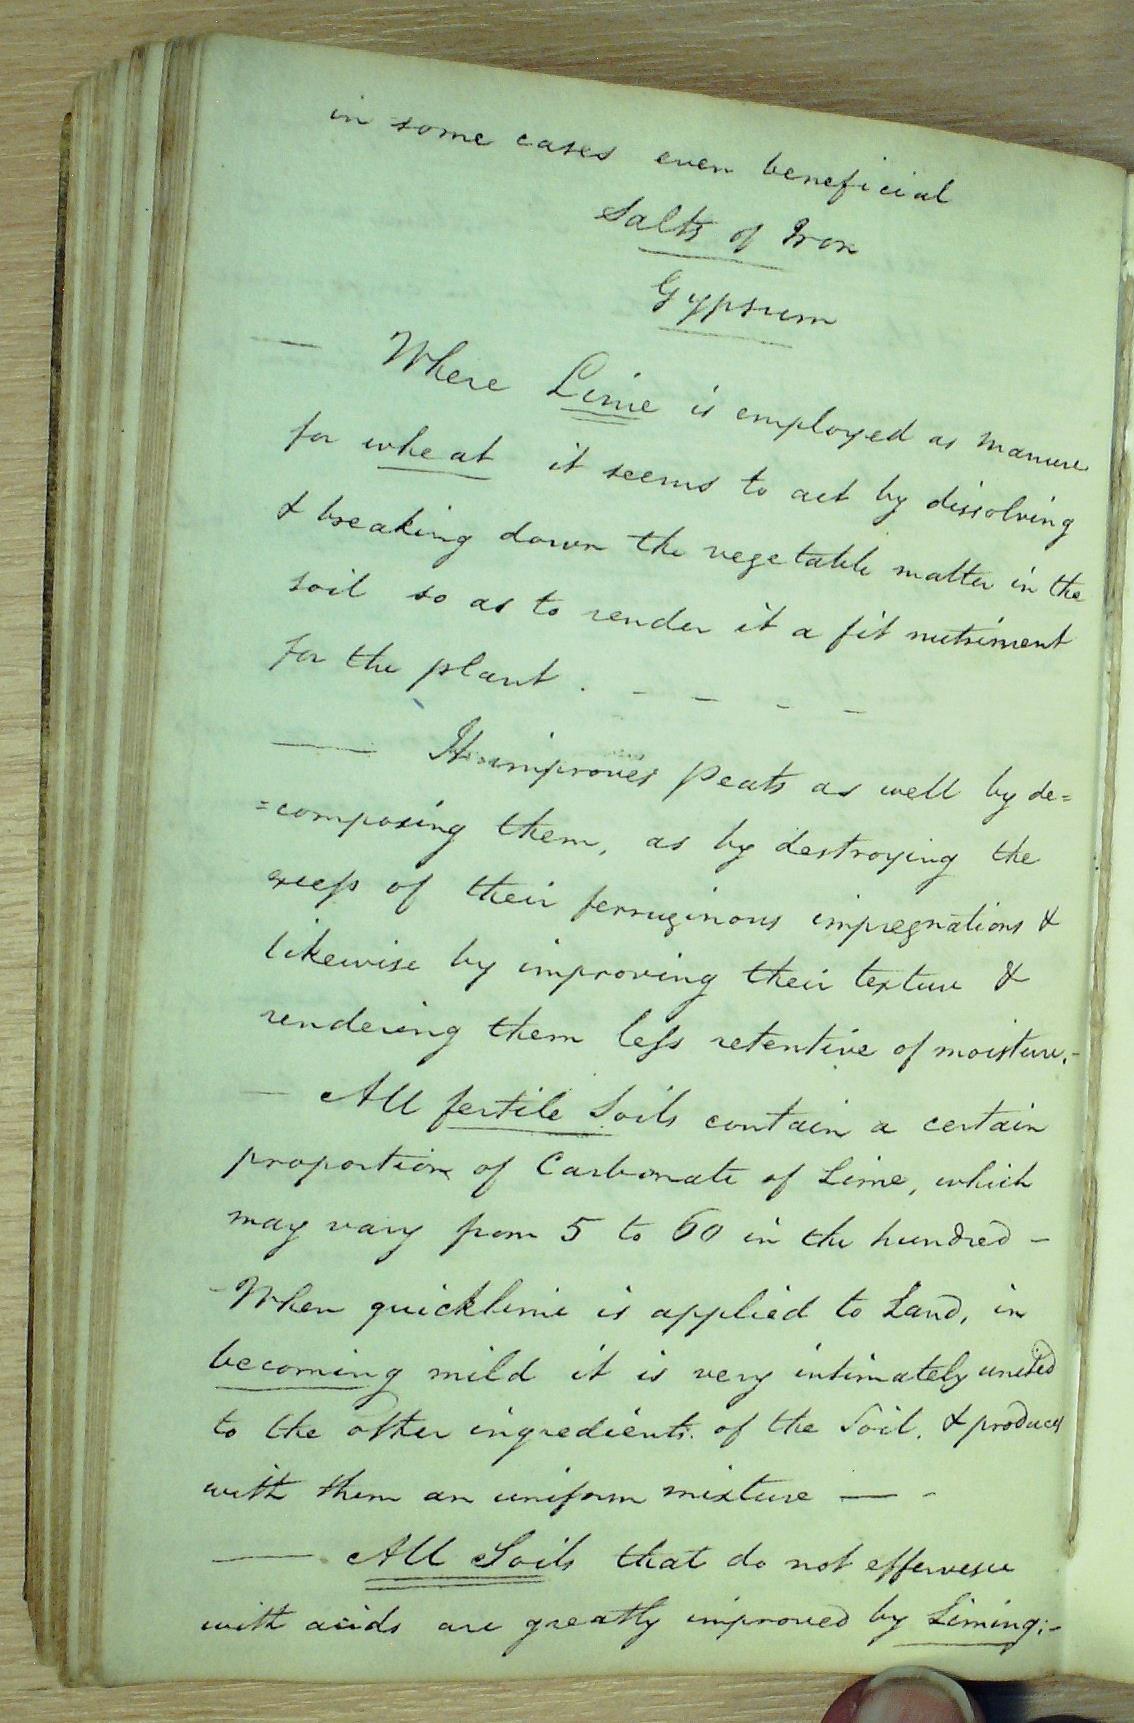 in some cases even beneficial
Salts of Iron
Gypsum
— Where Lime is employed as manure
for wheat it seems to act by dissolving
& breaking down the vegetable matter in the
soil so as to render it a fit nutriment
for the plant . - - - -
— It improves Peats as well by de=
=composing them, as by destroying the
excess of their ferruginous impregnations &
likewise by improving their texture &
rendering them less retentive of moisture.-
— All fertile Soils contain a certain
proportion of Carbonate of Lime, which
may vary from 5 to 60 in the hundred -
- When quicklime is applied to Land, in
becoming mild it is very intimately united
to the other ingredients of the Soil, & produces
with them an uniform mixture — -
— All Soils that do not effervesce
with acids are greatly improved by Liming:-